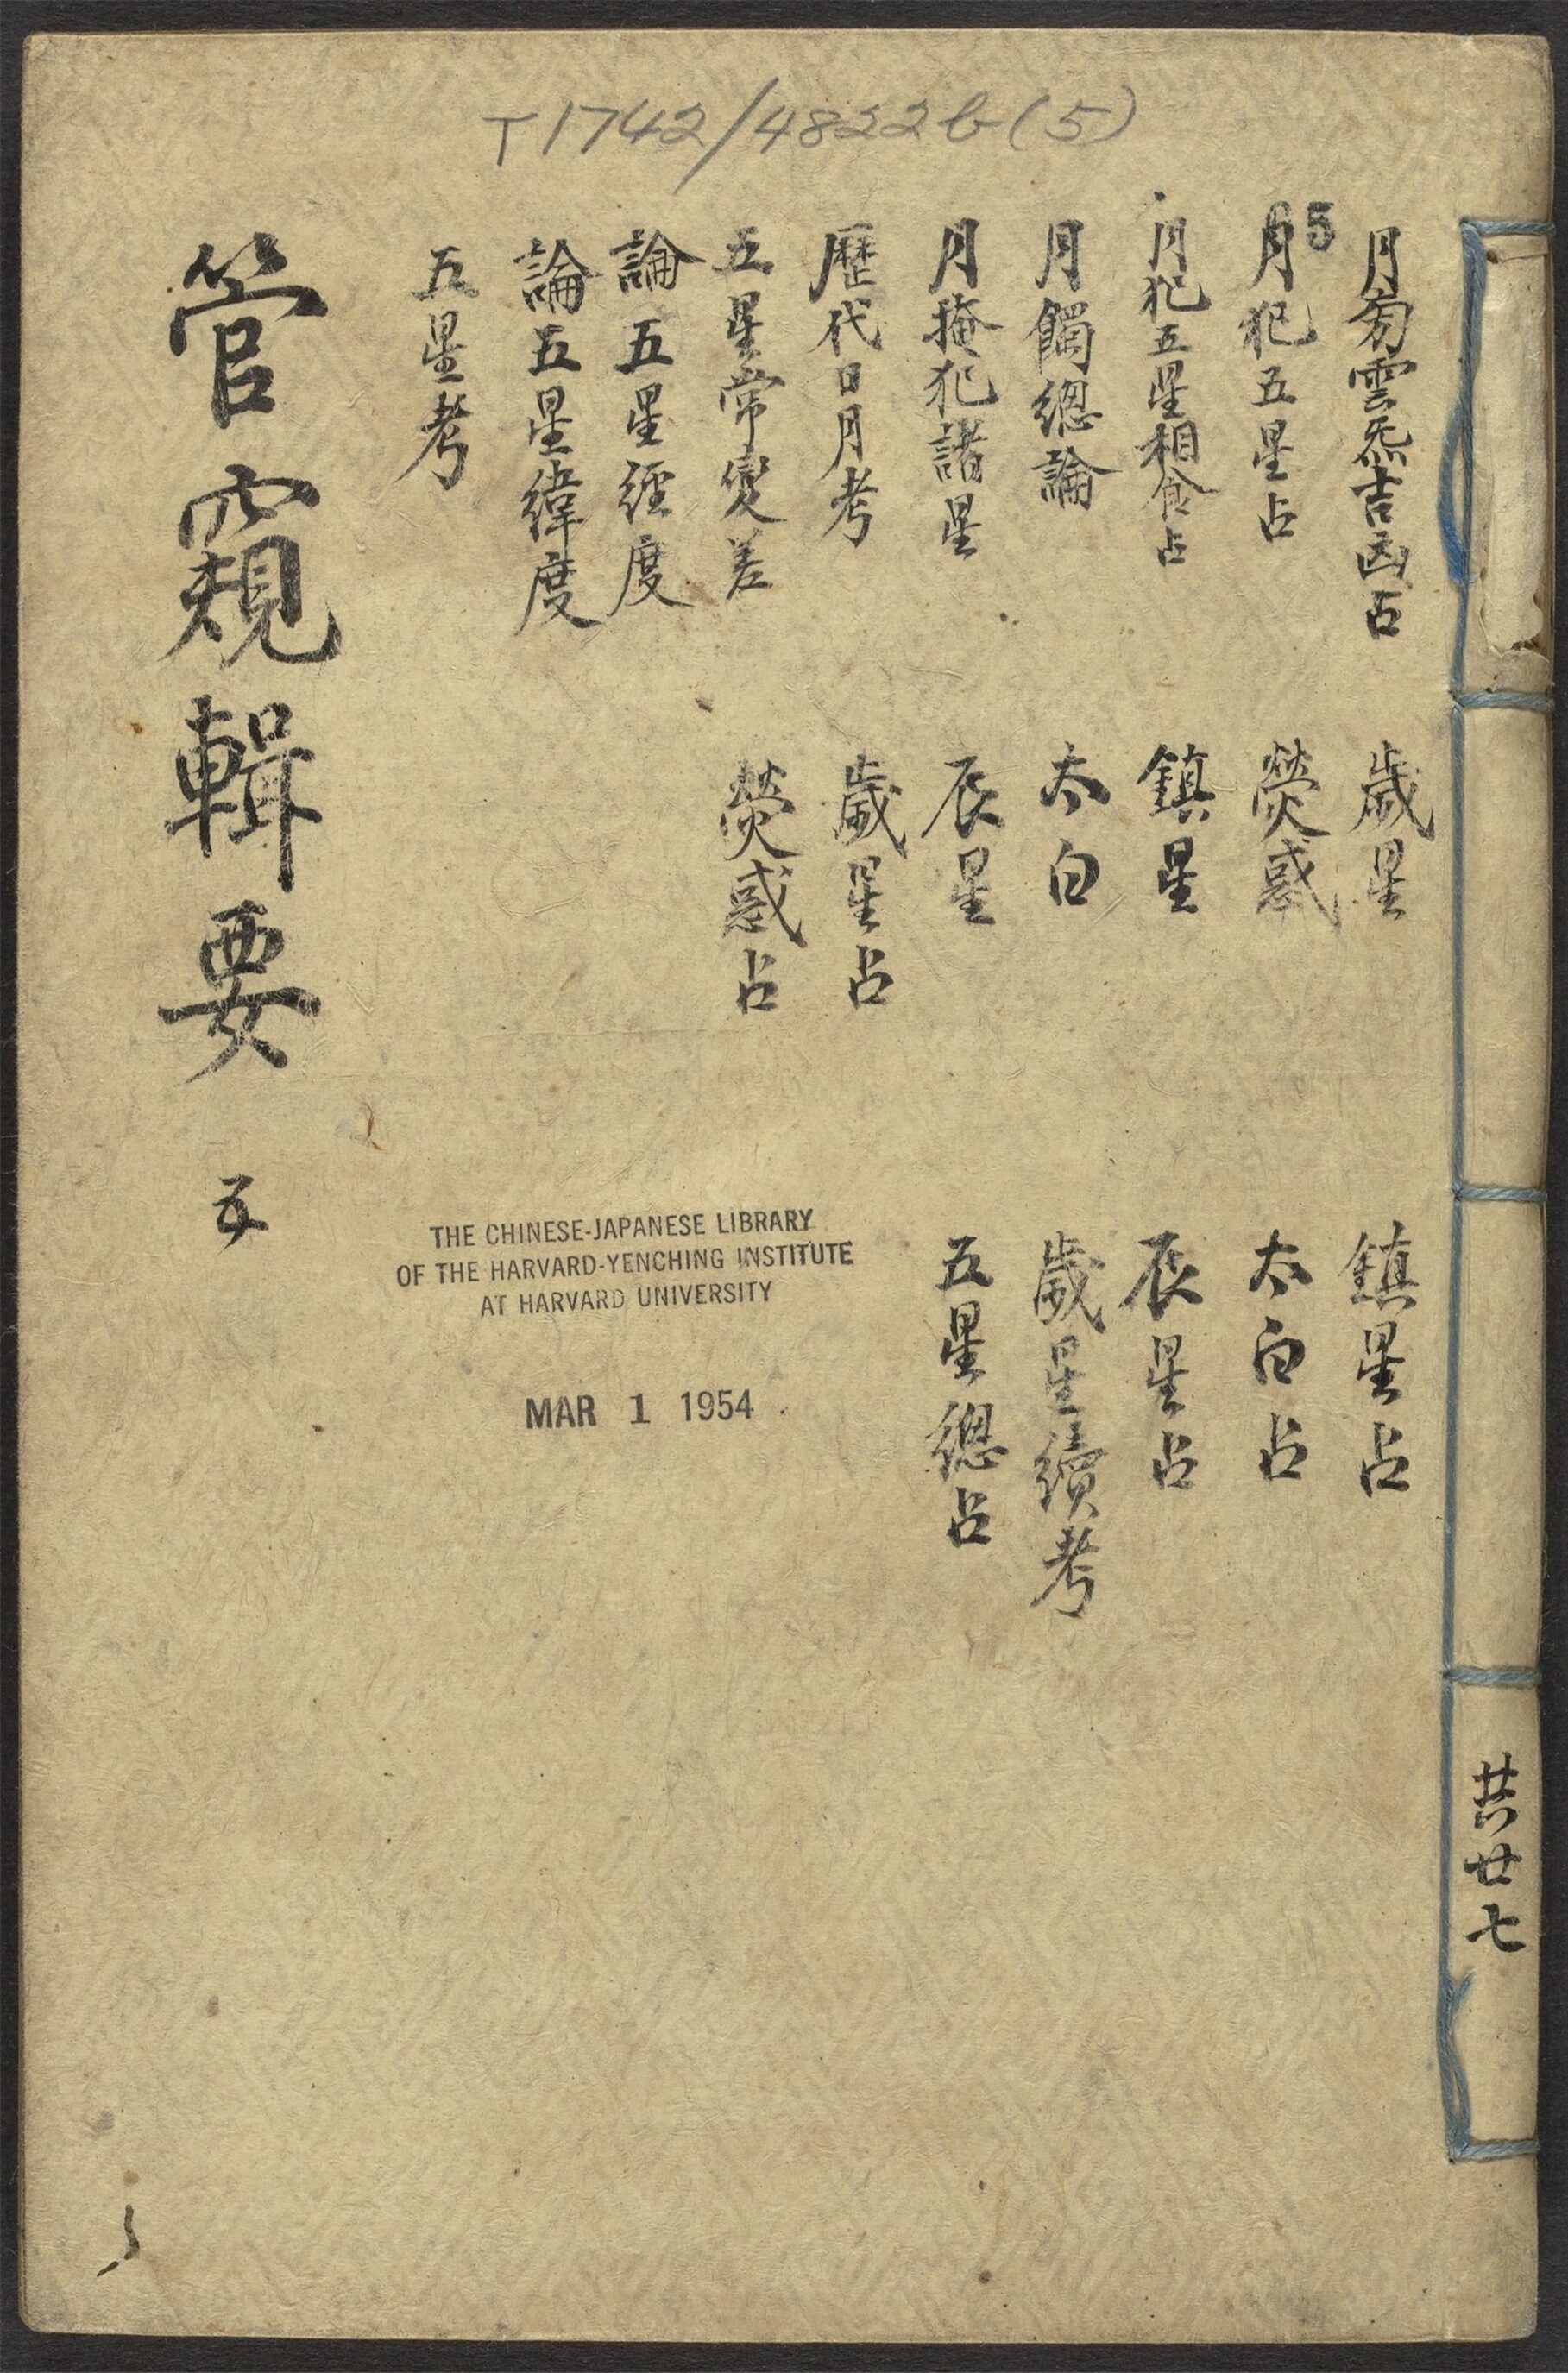 T1742/4822b(5)
5
月旁雲炁吉凶占
月犯五星占
月犯五星相食占
月蠲總論
月掩犯諸星
歷代日月考
五星常變差
論五星經度
論五星緯度
五星考
歲星
熒惑
鎮星
太白
辰星
歲星占
熒惑占
鎮星占
太白占
辰星占
歲星續考
五星總占
管窺輯要 五
THE CHINESE-JAPANESE LIBRARY
OF THE HARVARD-YENCHING INSTITUTE
AT HARVARD UNIVERSITY
MAR 1 1954
共廿七